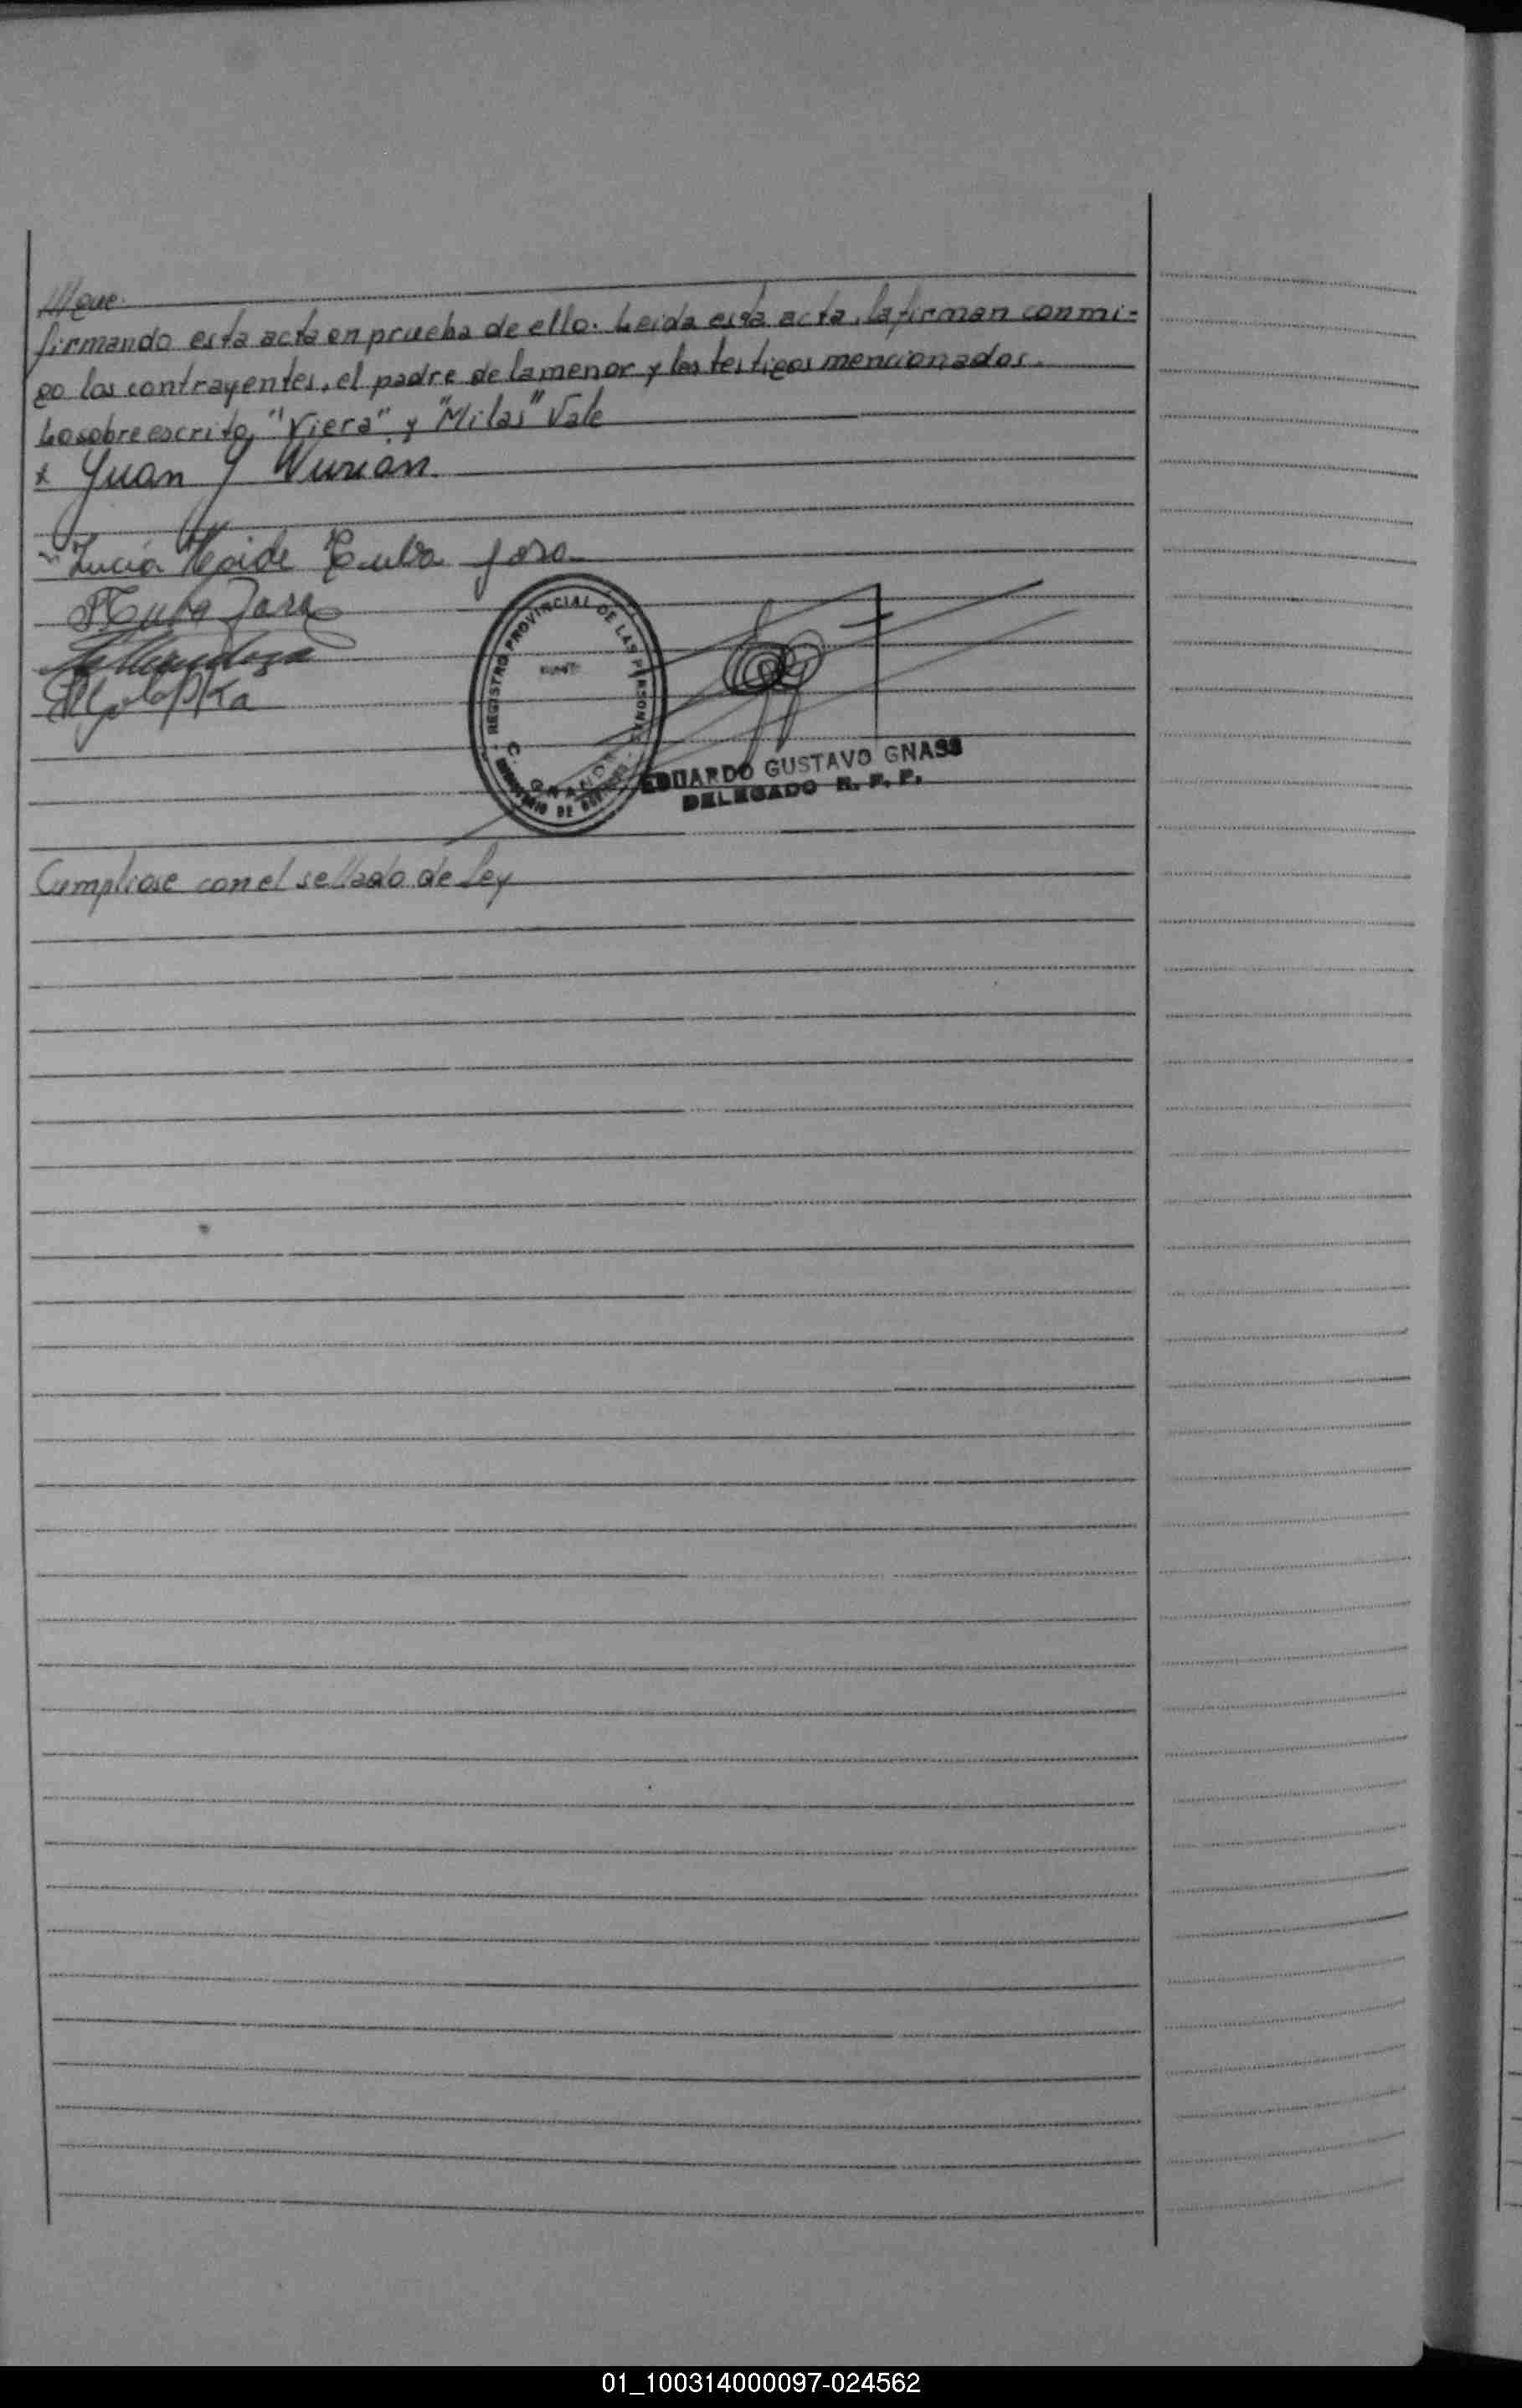 ///gue.
firmando esta acta en prueba de ello. Leida esta acta, la firman conmi=
go los contrayentes, el padre de la menor y los testigos mencionados.
Lo sobreescrito, "Viera" y "Milas" Vale
x Juan J
Lucia Haide
REGISTRO PROVINCIAL DE LAS PERSONAS
C. GRANDE
MINISTERIO DE GOBIERNO
EDUARDO GUSTAVO GNASS
DELEGADO R. P. P.
Cumpliose con el sellado de Ley
01_100314000097-024562